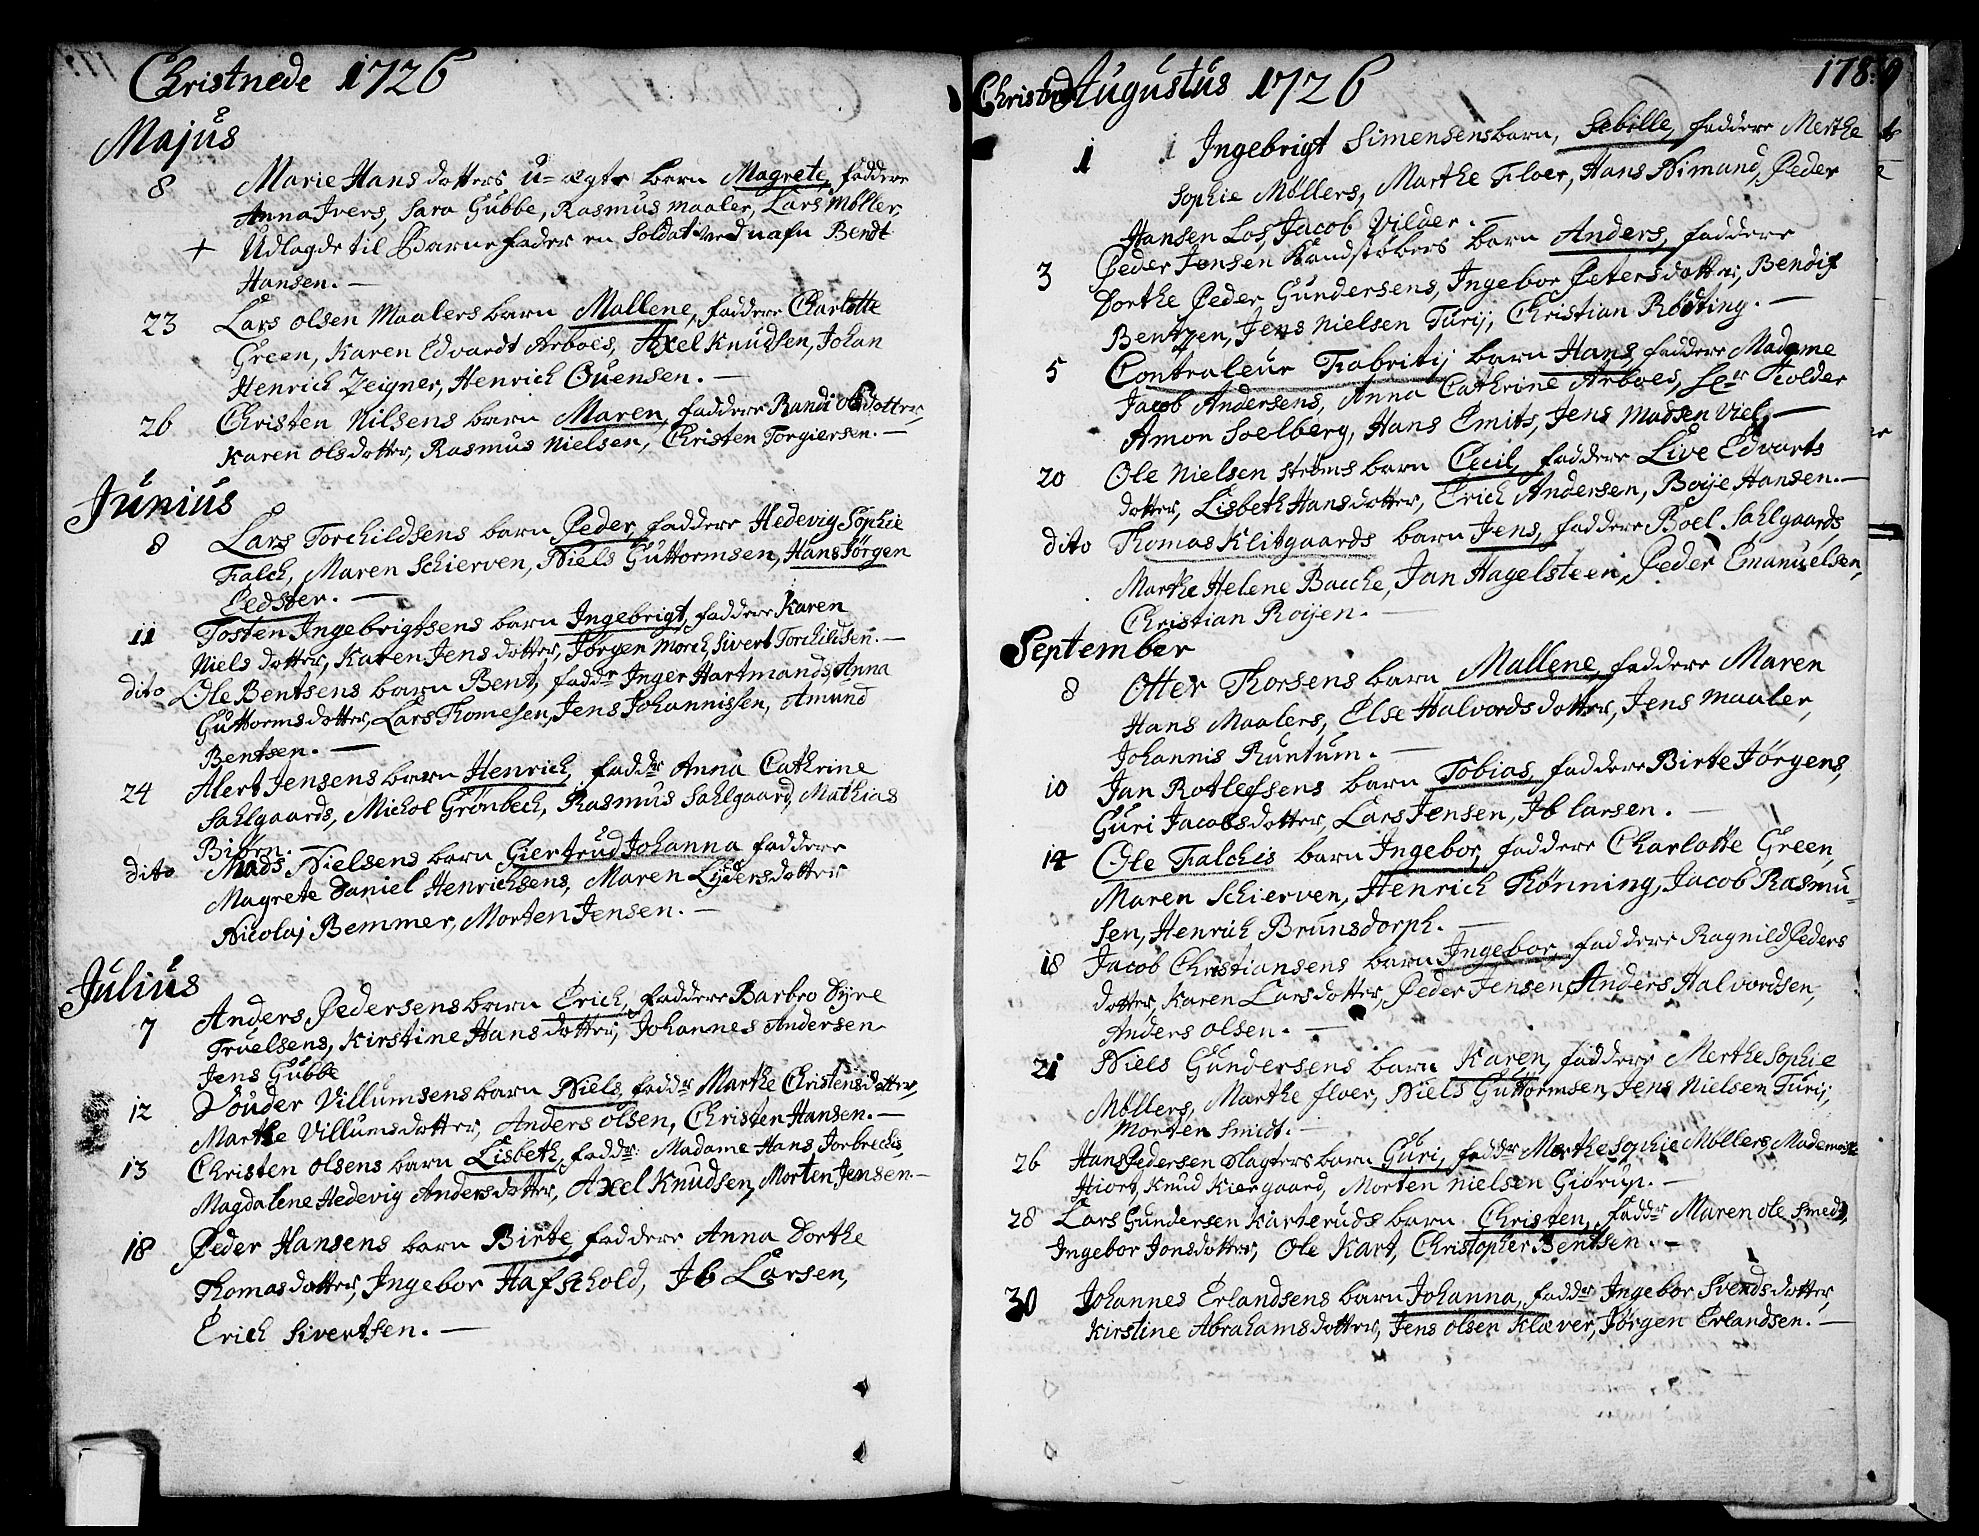 Christnede 1726
Majus
8 Marie Hans datters u-ægte barn Magrete, faddere
Anna Ivers, Sara Gubbe, Rasmus maaler, Lars Möller,
+ Udlagde til Barnefader en Soldat ved nafn Bendt
Hansen. —
23 Lars olsen Maalers barn Mallene, faddere Charlotte
Green, Karen Edvardt Arboes, Axel Knudsen, Johan
Henrich Zeigner, Henrich Ouensen. —
26 Christen Nilsens barn Maren, faddere Randi olsdotter,
Karen olsdotter, Rasmus Nielsen, Christen Torgiersen. —
Junius
8 Lars Torchildsens barn Peder, faddere Hedevig Sophie
Falch, Maren Schierven, Niels Guttormsen, Hans Jörgen
Pedster. —
11 Tosten Ingebrigtsens barn Ingebrigt, faddere Karen
Niels dotter, Karen Jens dotter, Jörgen Morch, Sivert Torchildsen. —
dito Ole Bentsens barn Bent, faddr Inger Hartmands, Anna
Guttormsdotter, Lars Thomesen, Jens Johannissen, Amund
Bentsen. —
24 Alert Jensens barn Henrich, faddr Anna Cathrine
Sahlgaards, Michol Grönbech, Rasmus Sahlgaard, Mathias
Biörn. —
dito Mads Nielsens barn Giertrud Johanna faddere
Magrete Daniel Henrichsens, Maren Lydersdotter
Nicolaj Bemmer, Morten Jensen. —
Julius
7 Anders Pedersens barn Erich, faddere Barbro Dyre
Truelsens, Kirstine Hans dotter, Johannes Andersen
Jens Gubbe
12 Vouder Villumsens barn Niels, faddr Marthe Christensdotter,
Marthe Villumsdotter, Anders olsen, Christen Hansen. —
13 Christen olsens barn Lisbeth, faddr: Madame Hans Jorbrechts,
Magdalene Hedevig Andersdotter, Axel Knudsen, Morten Jensen —
18 Peder Hansens barn Birte, faddere Anna Dorthe
Thomasdotter, Ingebor Hafschold, Ib Larsen,
Erich Sivertsen. —
Christnede Augustus 1726 178
1 Ingebrigt Simensens barn, Sebille, faddere Merthe
Sophie Möllers, Marthe Floer, Hans Nimand, Peder
Hansen Los, Jacob Vilder. —
3 Peder Jensen Kandstöbers barn Anders, faddere
Dorthe Peder Gundersens, Ingebor Petersdotter, Bendix
Bentzen, Jens Nielsen Turij, Christian Rödting. —
5 Contraleur Fabritij barn Hans, faddere Madame
Jacob Andersens, Anna Cathrine Arboes, Ser Holder
Amon Soelberg, Hans Smits, Jens Madsen Viel, —
20 Ole Nielsen Ströms barn Cecil, faddere Live Edvarts
dotter, Lisbeth Hansdotter, Erich Andersen, Boije Hansen. —
dito Thomas Klitgaards barn Jens, faddere Boel Sahlgaards,
Marthe Helene Bacche, Jan Hagelsteen, Peder Emanuelsen,
Christian Roijen. —
September
8 Otter Thorsens barn Mallene, faddere Maren
Hans Maalers, Else Halvordsdotter, Jens maaler,
Johannis Runtum. —
10 Jan Rotlefsens barn Tobias, faddere Birte Jörgens,
Guri Jacobsdotter, Lars Jensen, Ib larsen. —
14 Ole Falchis barn Ingebor, faddere Charlotte Green,
Maren Schierven, Henrich Thönning, Jacob Rasmu-
sen, Henrich Brunsdorph. —
18 Jacob Christiansens barn Ingebor, faddere Ragnild Peders
dotter, Karen Larsdotter, Peder Jensen, Anders Halvordsen,
Anders olsen. —
21 Niels Gundersens barn Karen, faddere Merthe Sophie
Möllers, Marthe floer, Niels Guttormsen, Jens Nielsen Turij,
Morten Smidt. —
26 Hans Pedersen Slagters barn Guri, faddr Merthe Sophie Möllers, Mademoiselle
Hiort, Knud Kiergaard, Morten Nielsen Giörup. —
28 Lars Gundersen Karteruds barn Christen, faddr Maren ole Smeds,
Ingebor Jonsdotter, Ole Kart, Christopher Bentsen —
30 Johannes Erlandsens barn Johanna, faddr Ingebor Svendsdotter,
Kirstine Abrahamsdotter, Jens olsen Klæver, Jörgen Erlandsen. —